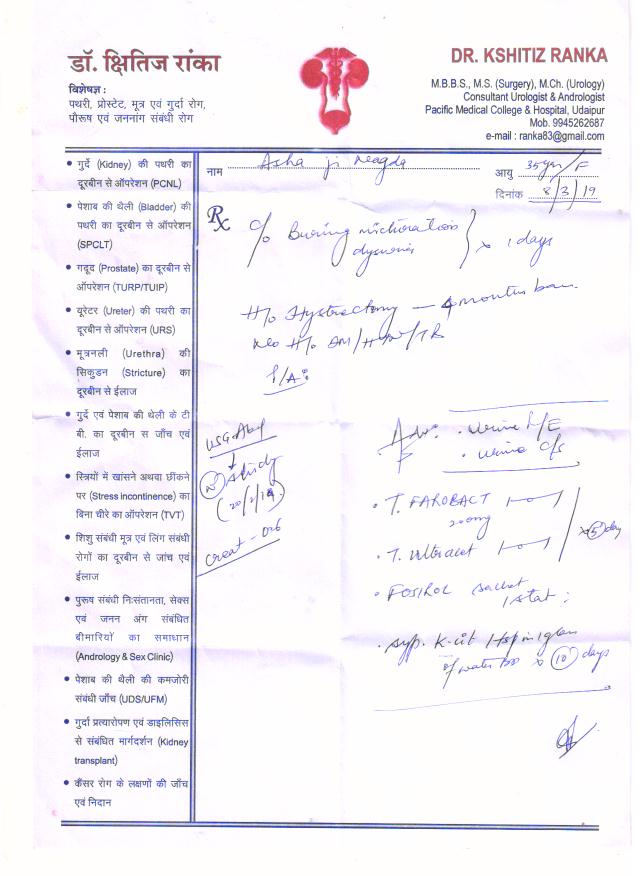 डॉ. क्षितिज रांका
विशेषज्ञ :
पथरी, प्रोस्टेट, मूत्र एवं गुर्दा रोग,
पौरूष एवं जननांग संबंधी रोग
DR. KSHITIZ RANKA
M.B.B.S., M.S. (Surgery), M.Ch. (Urology)
Consultant Urologist & Andrologist
Pacific Medical College & Hospital, Udaipur
Mob. 9945262687
e-mail : ranka83@gmail.com
नाम Asha ji
आयु 35yr/F
दिनांक 8/3/19
• गुर्दे (Kidney) की पथरी का
दूरबीन से ऑपरेशन (PCNL)
• पेशाब की थैली (Bladder) की
पथरी का दूरबीन से ऑपरेशन
(SPCLT)
• गदूद (Prostate) का दूरबीन से
ऑपरेशन (TURP/TUIP)
• यूरेटर (Ureter) की पथरी का
दूरबीन से ऑपरेशन (URS)
• मूत्रनली (Urethra) की
सिकुडन (Stricture) का
दूरबीन से ईलाज
• गुर्दे एवं पेशाब की थैली के टी
बी. का दूरबीन से जाँच एवं
ईलाज
• स्त्रियों में खांसने अथवा छींकने
पर (Stress incontinence) का
बिना चीरे का ऑपरेशन (TVT)
• शिशु संबंधी मूत्र एवं लिंग संबंधी
रोगों का दूरबीन से जांच एवं
ईलाज
• पुरूष संबंधी निःसंतानता, सेक्स
एवं जनन अंग संबंधित
बीमारियों का समाधान
(Andrology & Sex Clinic)
• पेशाब की थैली की कमजोरी
संबंधी जाँच (UDS/UFM)
• गुर्दा प्रत्यारोपण एवं डाइलिसिस
से संबंधित मार्गदर्शन (Kidney
transplant)
• कैंसर रोग के लक्षणों की जाँच
एवं निदान
Rx
c/o Burning micturation
dysuria } x 1 days
H/o Hystrectomy - 4 months
H/o DM/HTN/TB
P/A:
USG-Abd
(N) study
(20/2/19)
creat - 0.6
Adv: • Urine R/E
• Urine C/S
• T. FAROBACT
200mg
• T. Ultracet
x 5 day
• FOSIROL sachet
1 stat
• Syp. K-cit 1tsp in 1 glass
of water x 10 days